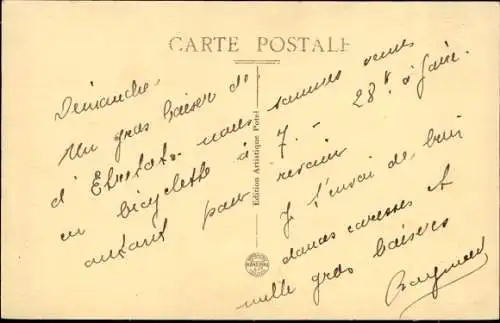 CARTE POSTALE
Dimanche.
Un gros baiser de
d'Etretat. nous sommes venus
en bicyclette à 7. - 28 k. à faire.
autant pour revenir
Je t'envoi de bien
douces caresses et
mille gros baisers
Raymond
Edition Artistique Potel